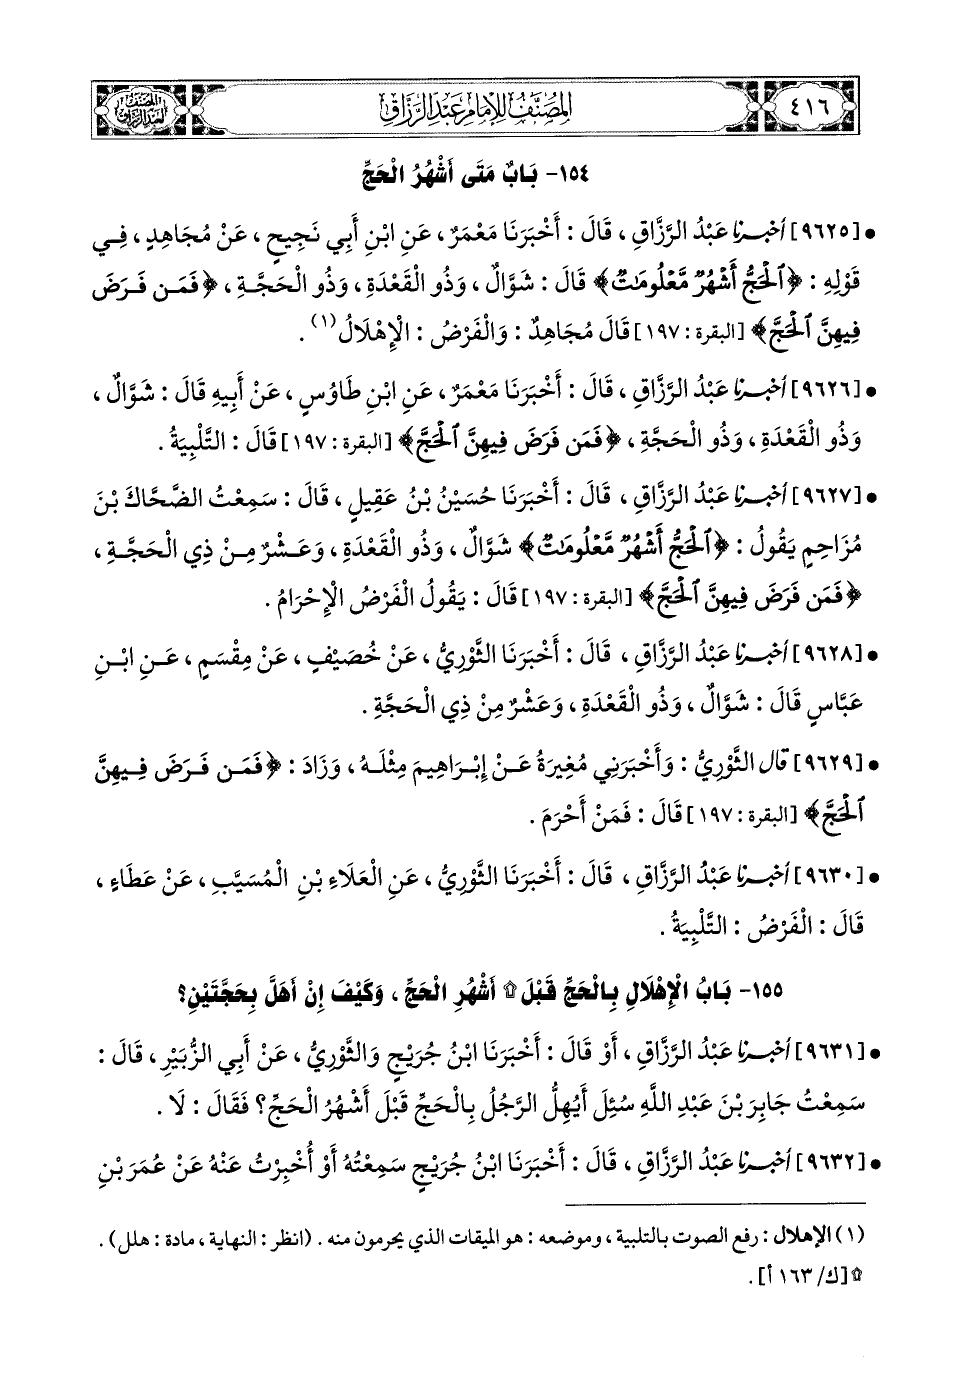 ٤١٦
المصنف للإمام عبد الرزاق
المصنف لعبد الرزاق
١٥٤- بَابٌ مَتَى أَشْهُرُ الْحَجِّ
• [٩٦٢٥] أخبرنا عَبْدُ الرَّزَّاقِ، قَالَ : أَخْبَرَنَا مَعْمَرٌ، عَنِ ابْنِ أَبِي نَجِيحٍ، عَنْ مُجَاهِدٍ، فِي
قَوْلِهِ : ﴿ٱلْحَجُّ أَشْهُرٌ مَّعْلُومَـٰتٌ﴾ قَالَ : شَوَّالٌ، وَذُو الْقَعْدَةِ، وَذُو الْحَجَّةِ، ﴿فَمَن فَرَضَ
فِيهِنَّ ٱلْحَجَّ﴾ [البقرة : ١٩٧] قَالَ مُجَاهِدٌ : وَالْفَرْضُ : الْإِهْلَالُ(١).
• [٩٦٢٦] أخبرنا عَبْدُ الرَّزَّاقِ، قَالَ : أَخْبَرَنَا مَعْمَرٌ، عَنِ ابْنِ طَاوُسٍ، عَنْ أَبِيهِ قَالَ : شَوَّالٌ،
وَذُو الْقَعْدَةِ، وَذُو الْحَجَّةِ، ﴿فَمَن فَرَضَ فِيهِنَّ ٱلْحَجَّ﴾ [البقرة : ١٩٧] قَالَ : التَّلْبِيَةُ.
• [٩٦٢٧] أخبرنا عَبْدُ الرَّزَّاقِ، قَالَ : أَخْبَرَنَا حُسَيْنُ بْنُ عَقِيلٍ، قَالَ : سَمِعْتُ الضَّحَّاكَ بْنَ
مُزَاحِمٍ يَقُولُ : ﴿ٱلْحَجُّ أَشْهُرٌ مَّعْلُومَـٰتٌ﴾ شَوَّالٌ، وَذُو الْقَعْدَةِ، وَعَشْرٌ مِنْ ذِي الْحَجَّةِ،
﴿فَمَن فَرَضَ فِيهِنَّ ٱلْحَجَّ﴾ [البقرة : ١٩٧] قَالَ : يَقُولُ الْفَرْضُ الْإِحْرَامُ.
• [٩٦٢٨] أخبرنا عَبْدُ الرَّزَّاقِ، قَالَ : أَخْبَرَنَا الثَّوْرِيُّ، عَنْ خُصَيْفٍ، عَنْ مِقْسَمٍ، عَنِ ابْنِ
عَبَّاسٍ قَالَ : شَوَّالٌ، وَذُو الْقَعْدَةِ، وَعَشْرٌ مِنْ ذِي الْحَجَّةِ.
• [٩٦٢٩] قال الثَّوْرِيُّ : وَأَخْبَرَنِي مُغِيرَةُ عَنْ إِبْرَاهِيمَ مِثْلَهُ، وَزَادَ : ﴿فَمَن فَرَضَ فِيهِنَّ
ٱلْحَجَّ﴾ [البقرة : ١٩٧] قَالَ : فَمَنْ أَحْرَمَ.
• [٩٦٣٠] أخبرنا عَبْدُ الرَّزَّاقِ، قَالَ : أَخْبَرَنَا الثَّوْرِيُّ، عَنِ الْعَلَاءِ بْنِ الْمُسَيَّبِ، عَنْ عَطَاءٍ،
قَالَ : الْفَرْضُ : التَّلْبِيَةُ.
١٥٥- بَابُ الْإِهْلَالِ بِالْحَجِّ قَبْلَ ۩ أَشْهُرِ الْحَجِّ، وَكَيْفَ إِنْ أَهَلَّ بِحَجَّتَيْنِ؟
• [٩٦٣١] أخبرنا عَبْدُ الرَّزَّاقِ، أَوْ قَالَ : أَخْبَرَنَا ابْنُ جُرَيْجٍ وَالثَّوْرِيُّ، عَنْ أَبِي الزُّبَيْرِ، قَالَ :
سَمِعْتُ جَابِرَ بْنَ عَبْدِ اللَّهِ سُئِلَ أَيُهِلُّ الرَّجُلُ بِالْحَجِّ قَبْلَ أَشْهُرُ الْحَجِّ؟ فَقَالَ : لَا.
• [٩٦٣٢] أخبرنا عَبْدُ الرَّزَّاقِ، قَالَ : أَخْبَرَنَا ابْنُ جُرَيْجٍ سَمِعْتُهُ أَوْ أُخْبِرْتُ عَنْهُ عَنْ عُمَرَ بْنِ
(١) الإهلال : رفع الصوت بالتلبية، وموضعه : هو الميقات الذي يحرمون منه. (انظر : النهاية، مادة : هلل).
۩ [ك/ ١٦٣ أ].